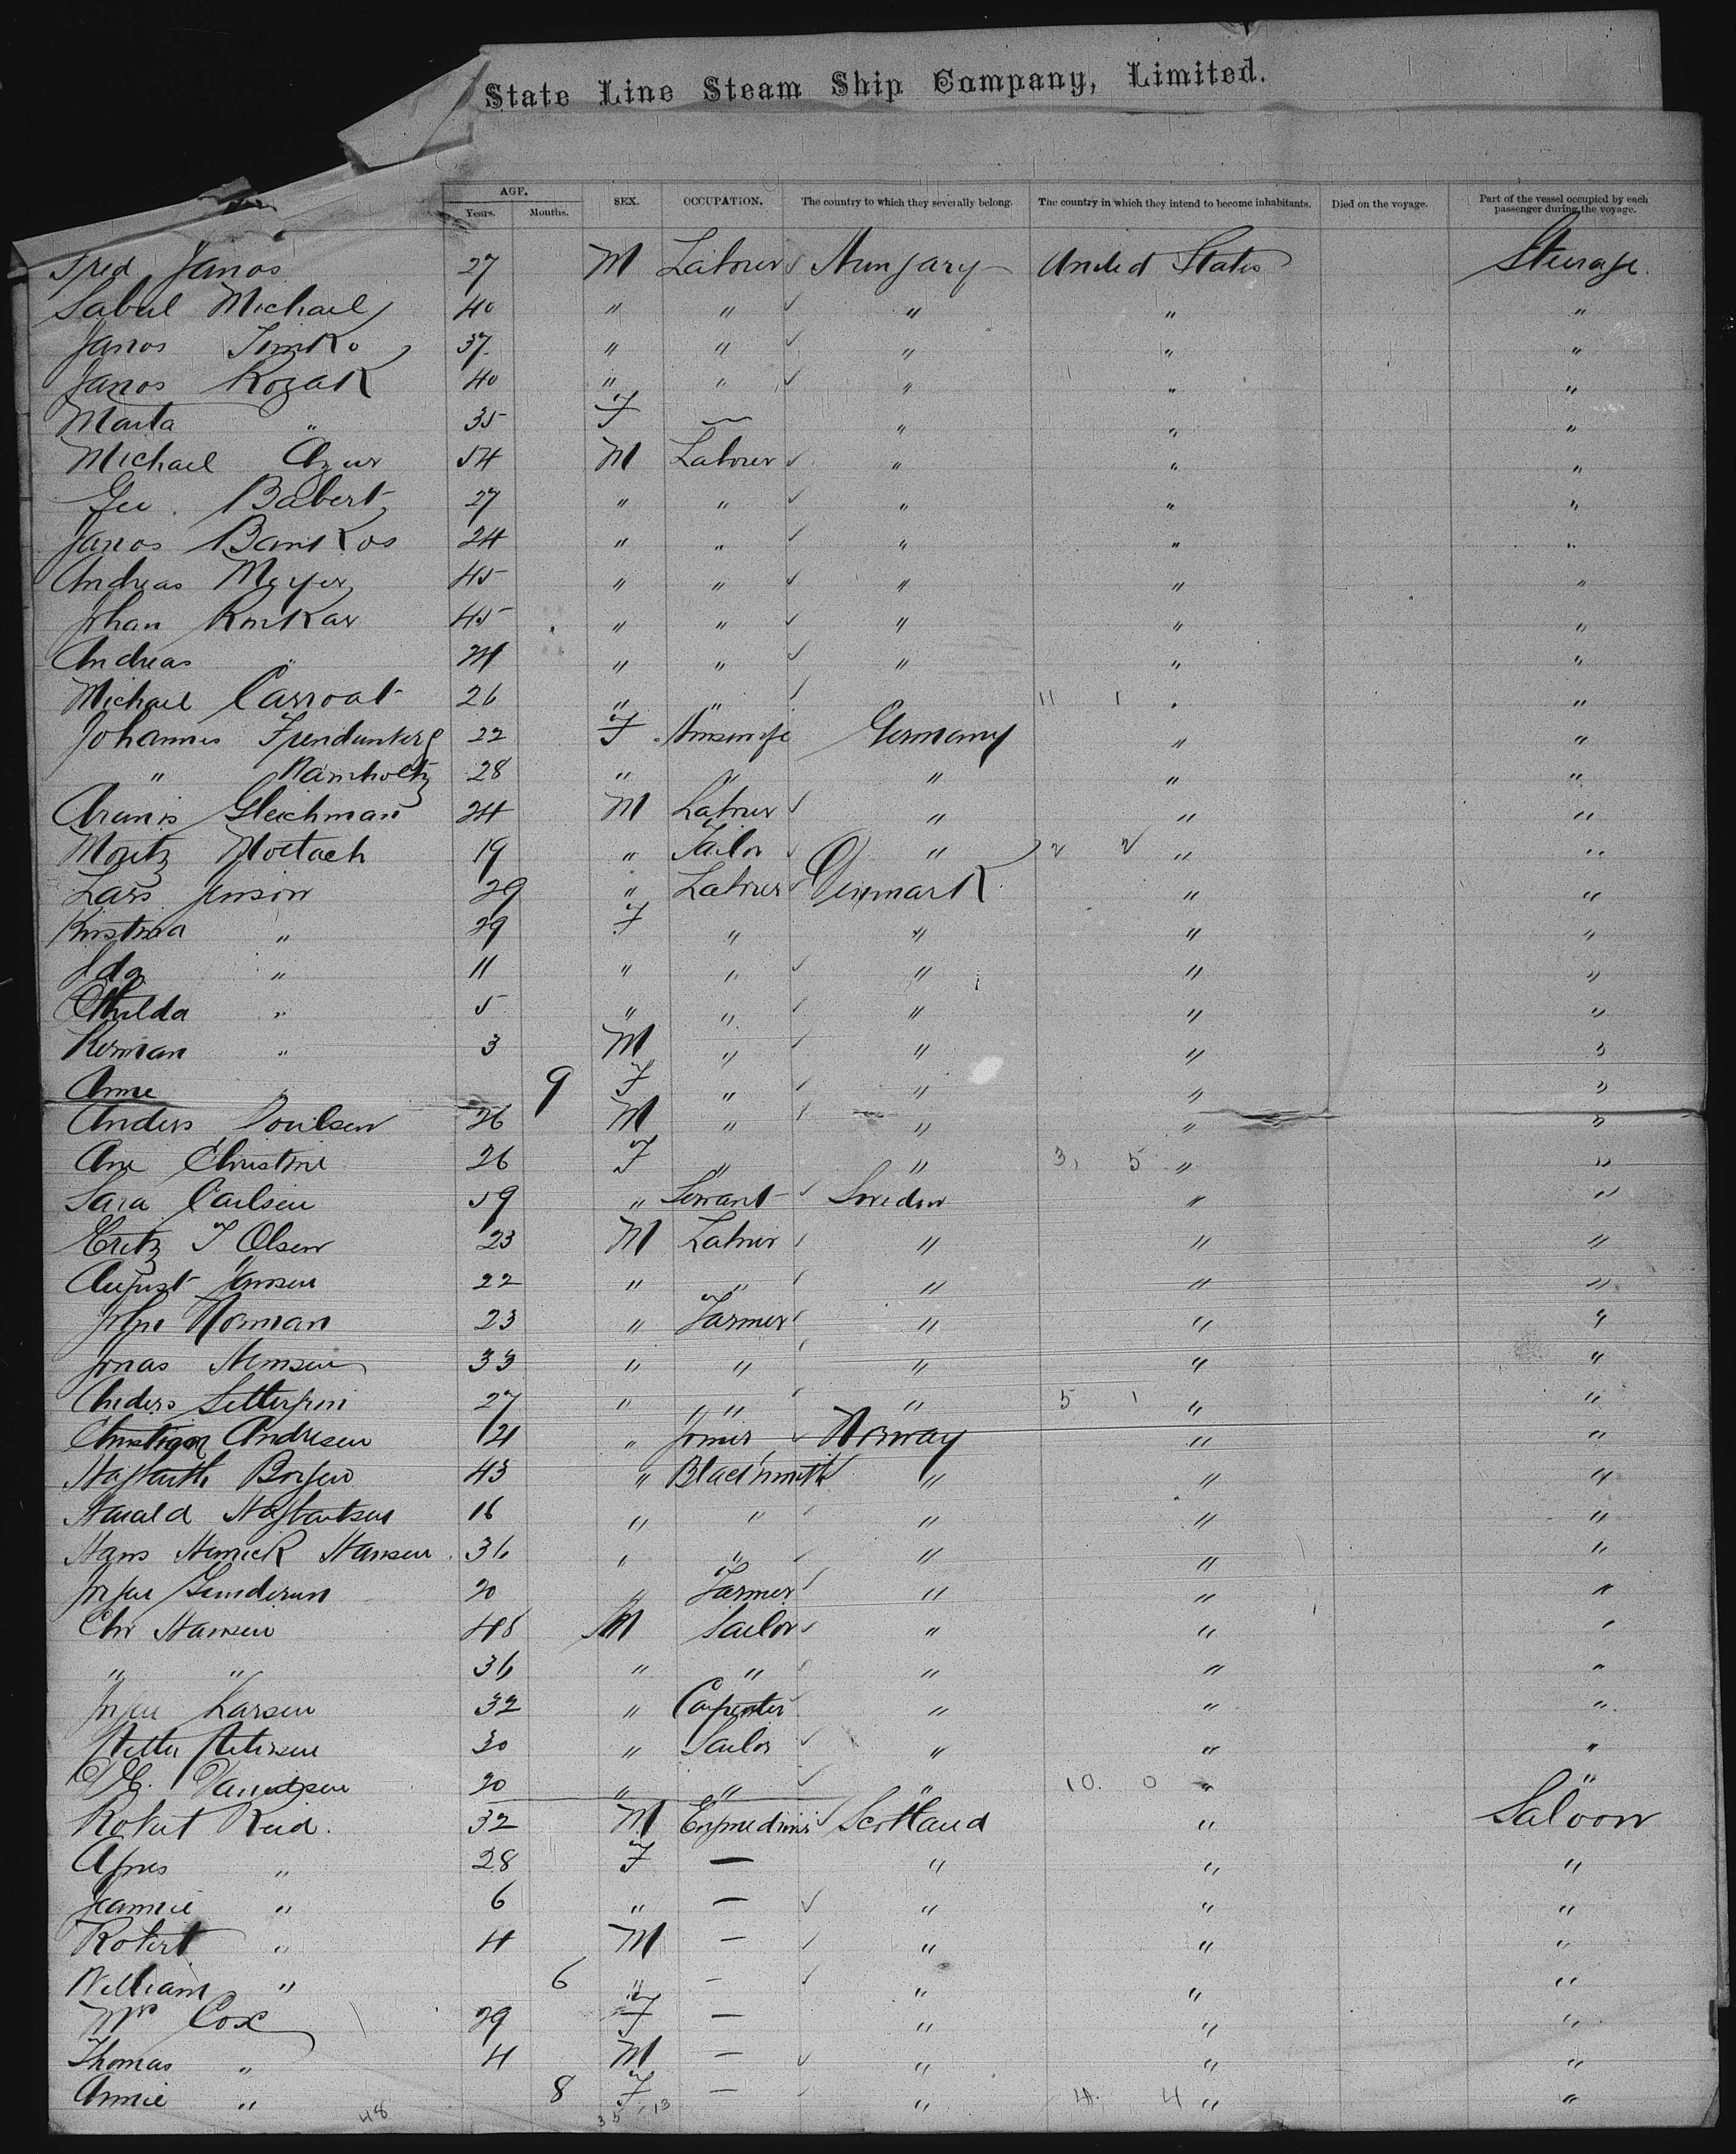 State Line Steam Ship Company, Limited.
AGE. SEX. OCCUPATION. The country to which they severally belong. The country in which they intend to become inhabitants. Died on the voyage. Part of the vessel occupied by each passenger during the voyage.
Years. Months.
Fred Janos 27 M Labourer Hungary United States Steerage.
Michael 40 " " " " "
Janos Timko 37 " " " " "
Janos Kozak 40 " " " " "
Marta " 35 F — " " "
Michael 54 M Labourer " " "
Geo. Babert 27 " " " " "
Janos Bankos 24 " " " " "
Andreas Meyer 45 " " " " "
Johan 45 " " " " "
Andreas " 24 " " " " "
Michael Carroat 26 " " 11 1 " "
Johannes 22 F Housewife Germany " "
" 28 " " " " "
Gleichman 24 M Labourer " " "
Moritz 19 " Tailor " 2 2 " "
Lars Jenson 29 " Labourer Denmark " "
Kristina " 29 F " " " "
Ida " 11 " " " " "
" 5 " " " " "
Herman " 3 M " " " "
Anne " 9 F " " " "
Anders Poulsen 26 M " " " "
Ane Christine 26 F " " 3, 5 " "
Sara Carlsen 59 " Servant Sweden " "
Fritz J Olsen 23 M Labourer " " "
August Jansen 22 " " " " "
John Norman 23 " Farmer " " "
Jonas 33 " " " " "
Anders 27 " " " 5 1 " "
Christian Andresen 21 " Joiner Norway " "
43 " Blacksmith " " "
Harald 16 " " " " "
Hans Henrick Hansen 36 " " " " "
Jorgen Gundersen 20 " Farmer " " "
Chr Hansen 48 M Sailor " " "
" " 36 " " " " "
Jorgen Larsen 32 " Carpenter " " "
Petter Petersen 30 " Sailor " " "
20 " " " 10. 0 " "
Robert Reid. 32 M Scotland " Saloon
Agnes " 28 F — " " "
Jeannie " 6 " — " " "
Robert " 4 M — " " "
William " 6 " — " " "
Mrs Cox 29 F — " " "
Thomas " 4 M — " " "
Annie " 8 F — " 4. 4 " "
48 35 13